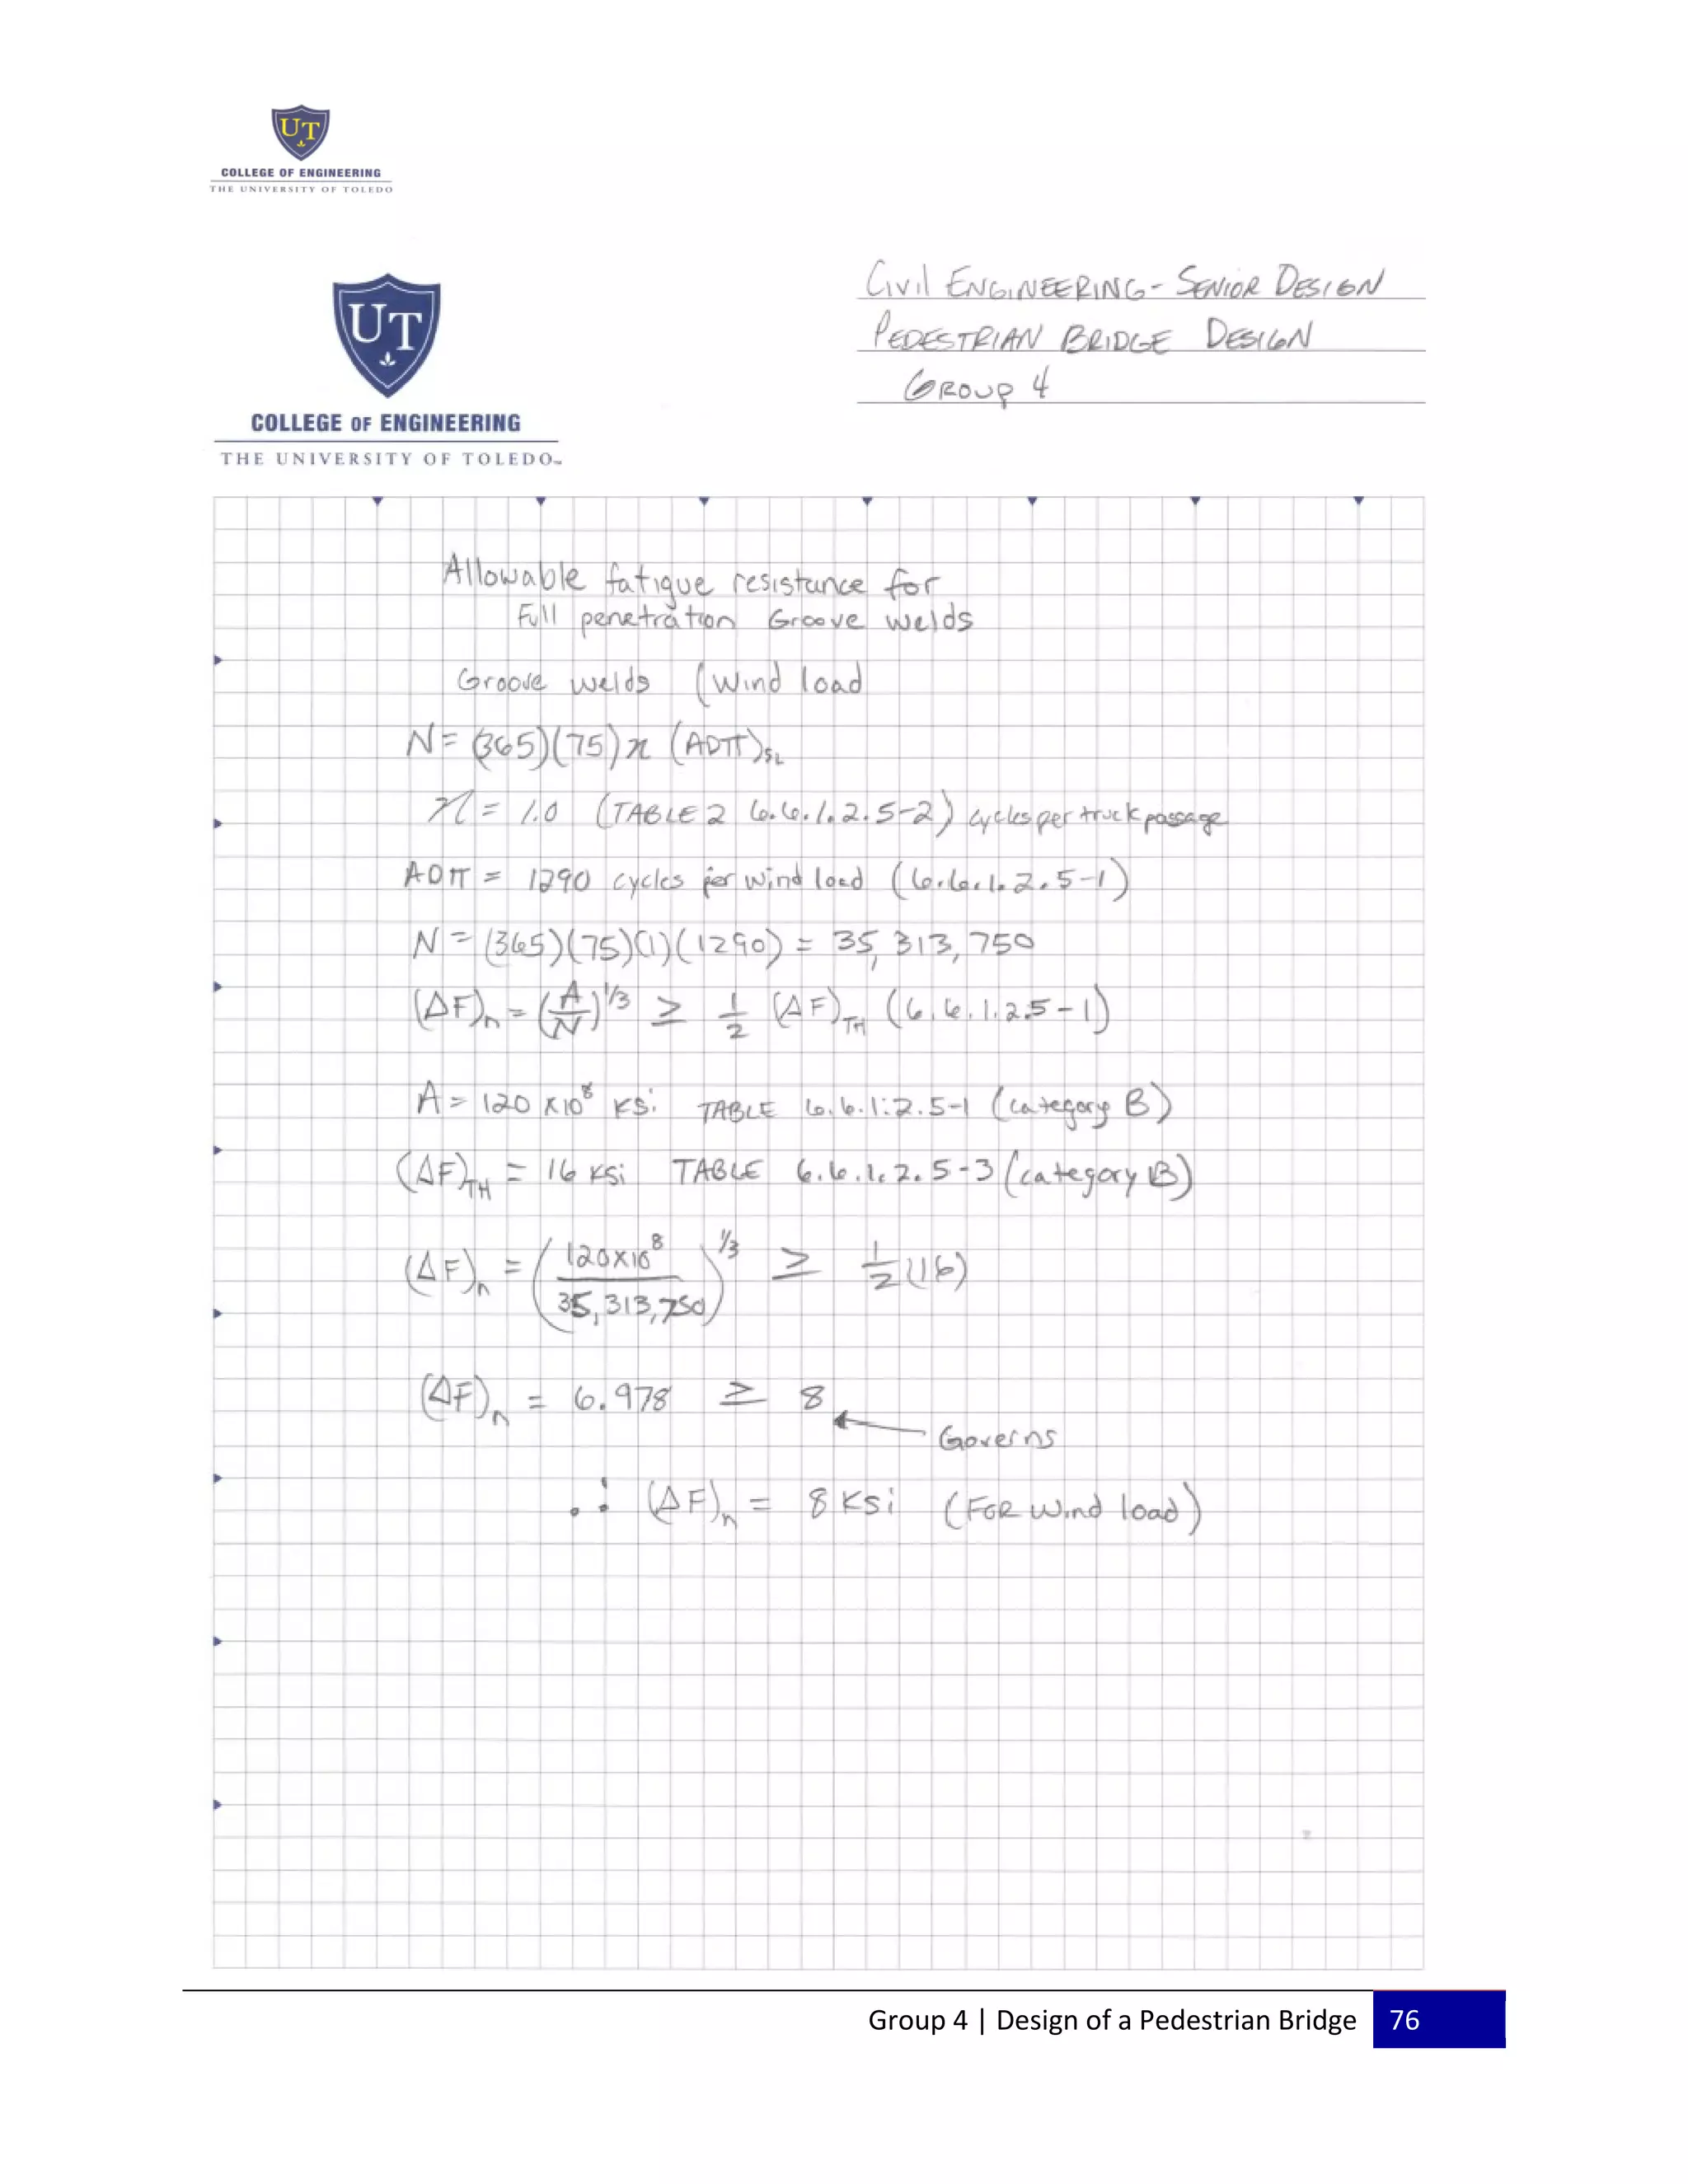 UT
COLLEGE OF ENGINEERING
THE UNIVERSITY OF TOLEDO
UT
COLLEGE OF ENGINEERING
THE UNIVERSITY OF TOLEDO
Civil ENGINEERING - SENIOR DESIGN
PEDESTRIAN BRIDGE DESIGN
GROUP 4
Allowable fatigue resistance for
Full penetration Groove welds
Groove welds (Wind load
N = (365)(75) n (ADTT)SL
n = 1.0 (TABLE 2 6.6.1.2.5-2) cycles per truck passage
ADTT = 1290 cycles per wind load (6.6.1.2.5-1)
N = (365)(75)(1)(1290) = 35,313,750
(ΔF)n = (A/N)^1/3 ≥ 1/2 (ΔF)TH (6.6.1.2.5-1)
A = 120 x10^8 KSi TABLE 6.6.1.2.5-1 (category B)
(ΔF)TH = 16 KSi TABLE 6.6.1.2.5-3 (category B)
(ΔF)n = (120x10^8 / 35,313,750)^1/3 ≥ 1/2 (16)
(ΔF)n = 6.978 ≥ 8
Governs
∴ (ΔF)n = 8 KSi (FOR Wind load)
Group 4 | Design of a Pedestrian Bridge 76